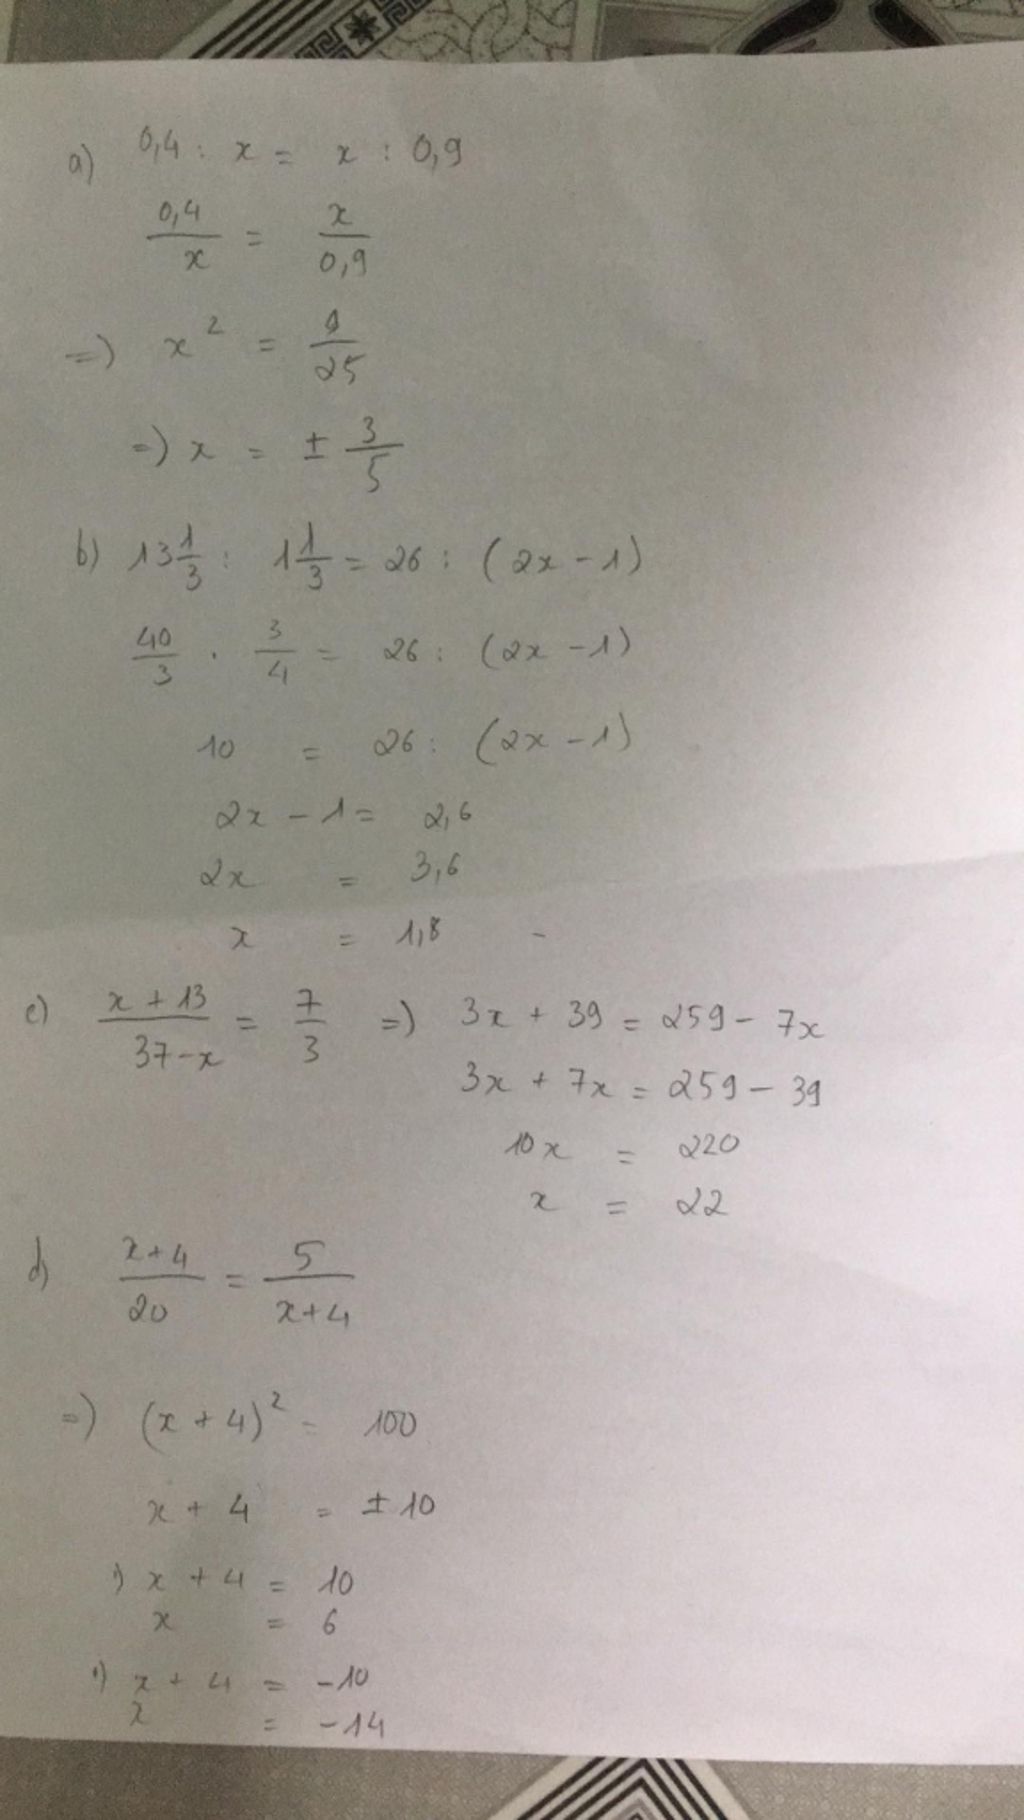 a) 0,4 : x = x : 0,9
0,4/x = x/0,9
=) x² = 9/25
=) x = ± 3/5
b) 13 1/3 : 1 1/3 = 26 : (2x - 1)
40/3 . 3/4 = 26 : (2x - 1)
10 = 26 : (2x - 1)
2x - 1 = 2,6
2x = 3,6
x = 1,8
c) x + 13/37 - x = 7/3 =) 3x + 39 = 259 - 7x
3x + 7x = 259 - 39
10x = 220
x = 22
d) x+4/20 = 5/x+4
=) (x + 4)² = 100
x + 4 = ± 10
1) x + 4 = 10
x = 6
1) x + 4 = -10
x = -14